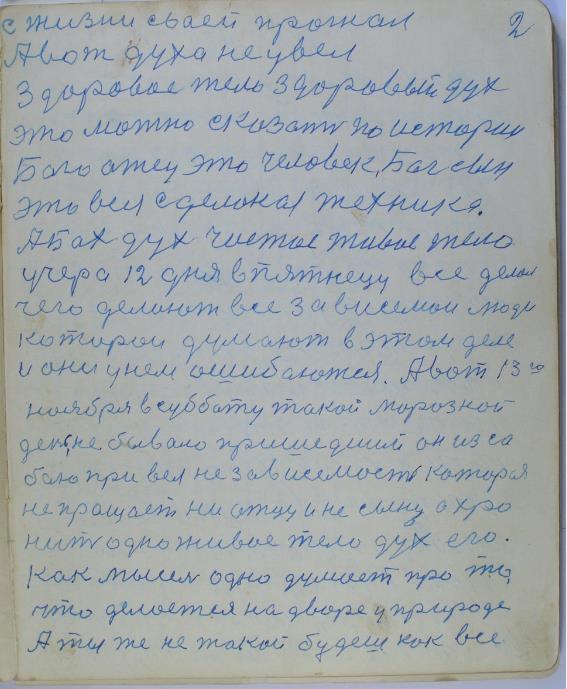 2
с жизни сваей прогнал
А вот духа не увел
Здоровое тело здоровый дух
это можно сказать по истории
Бого отец это человек, Бог сын
это вся сделоная техника.
А Бох дух чистое живое тело
учера 12 дня в пятнецу все делал
чего делоют все зависемои люди
которои думоют в этом деле
и они у нем ошибаются. А вот 13го
ноября в субботу такой морозной
ден, не бывало пришедший он из са
бою привел не зависемость которая
не пращает ни отцу и не сыну а хро
нить одно живое тело дух его.
Как мысля одно думает про то,
что делоется на дворе у природе
А ты же не такой будеш как все